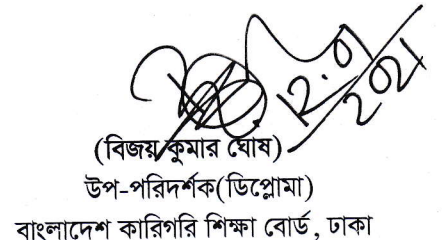 ১২.০১
২০২১
(বিজয় কুমার ঘোষ)
উপ-পরিদর্শক(ডিপ্লোমা)
বাংলাদেশ কারিগরি শিক্ষা বোর্ড, ঢাকা